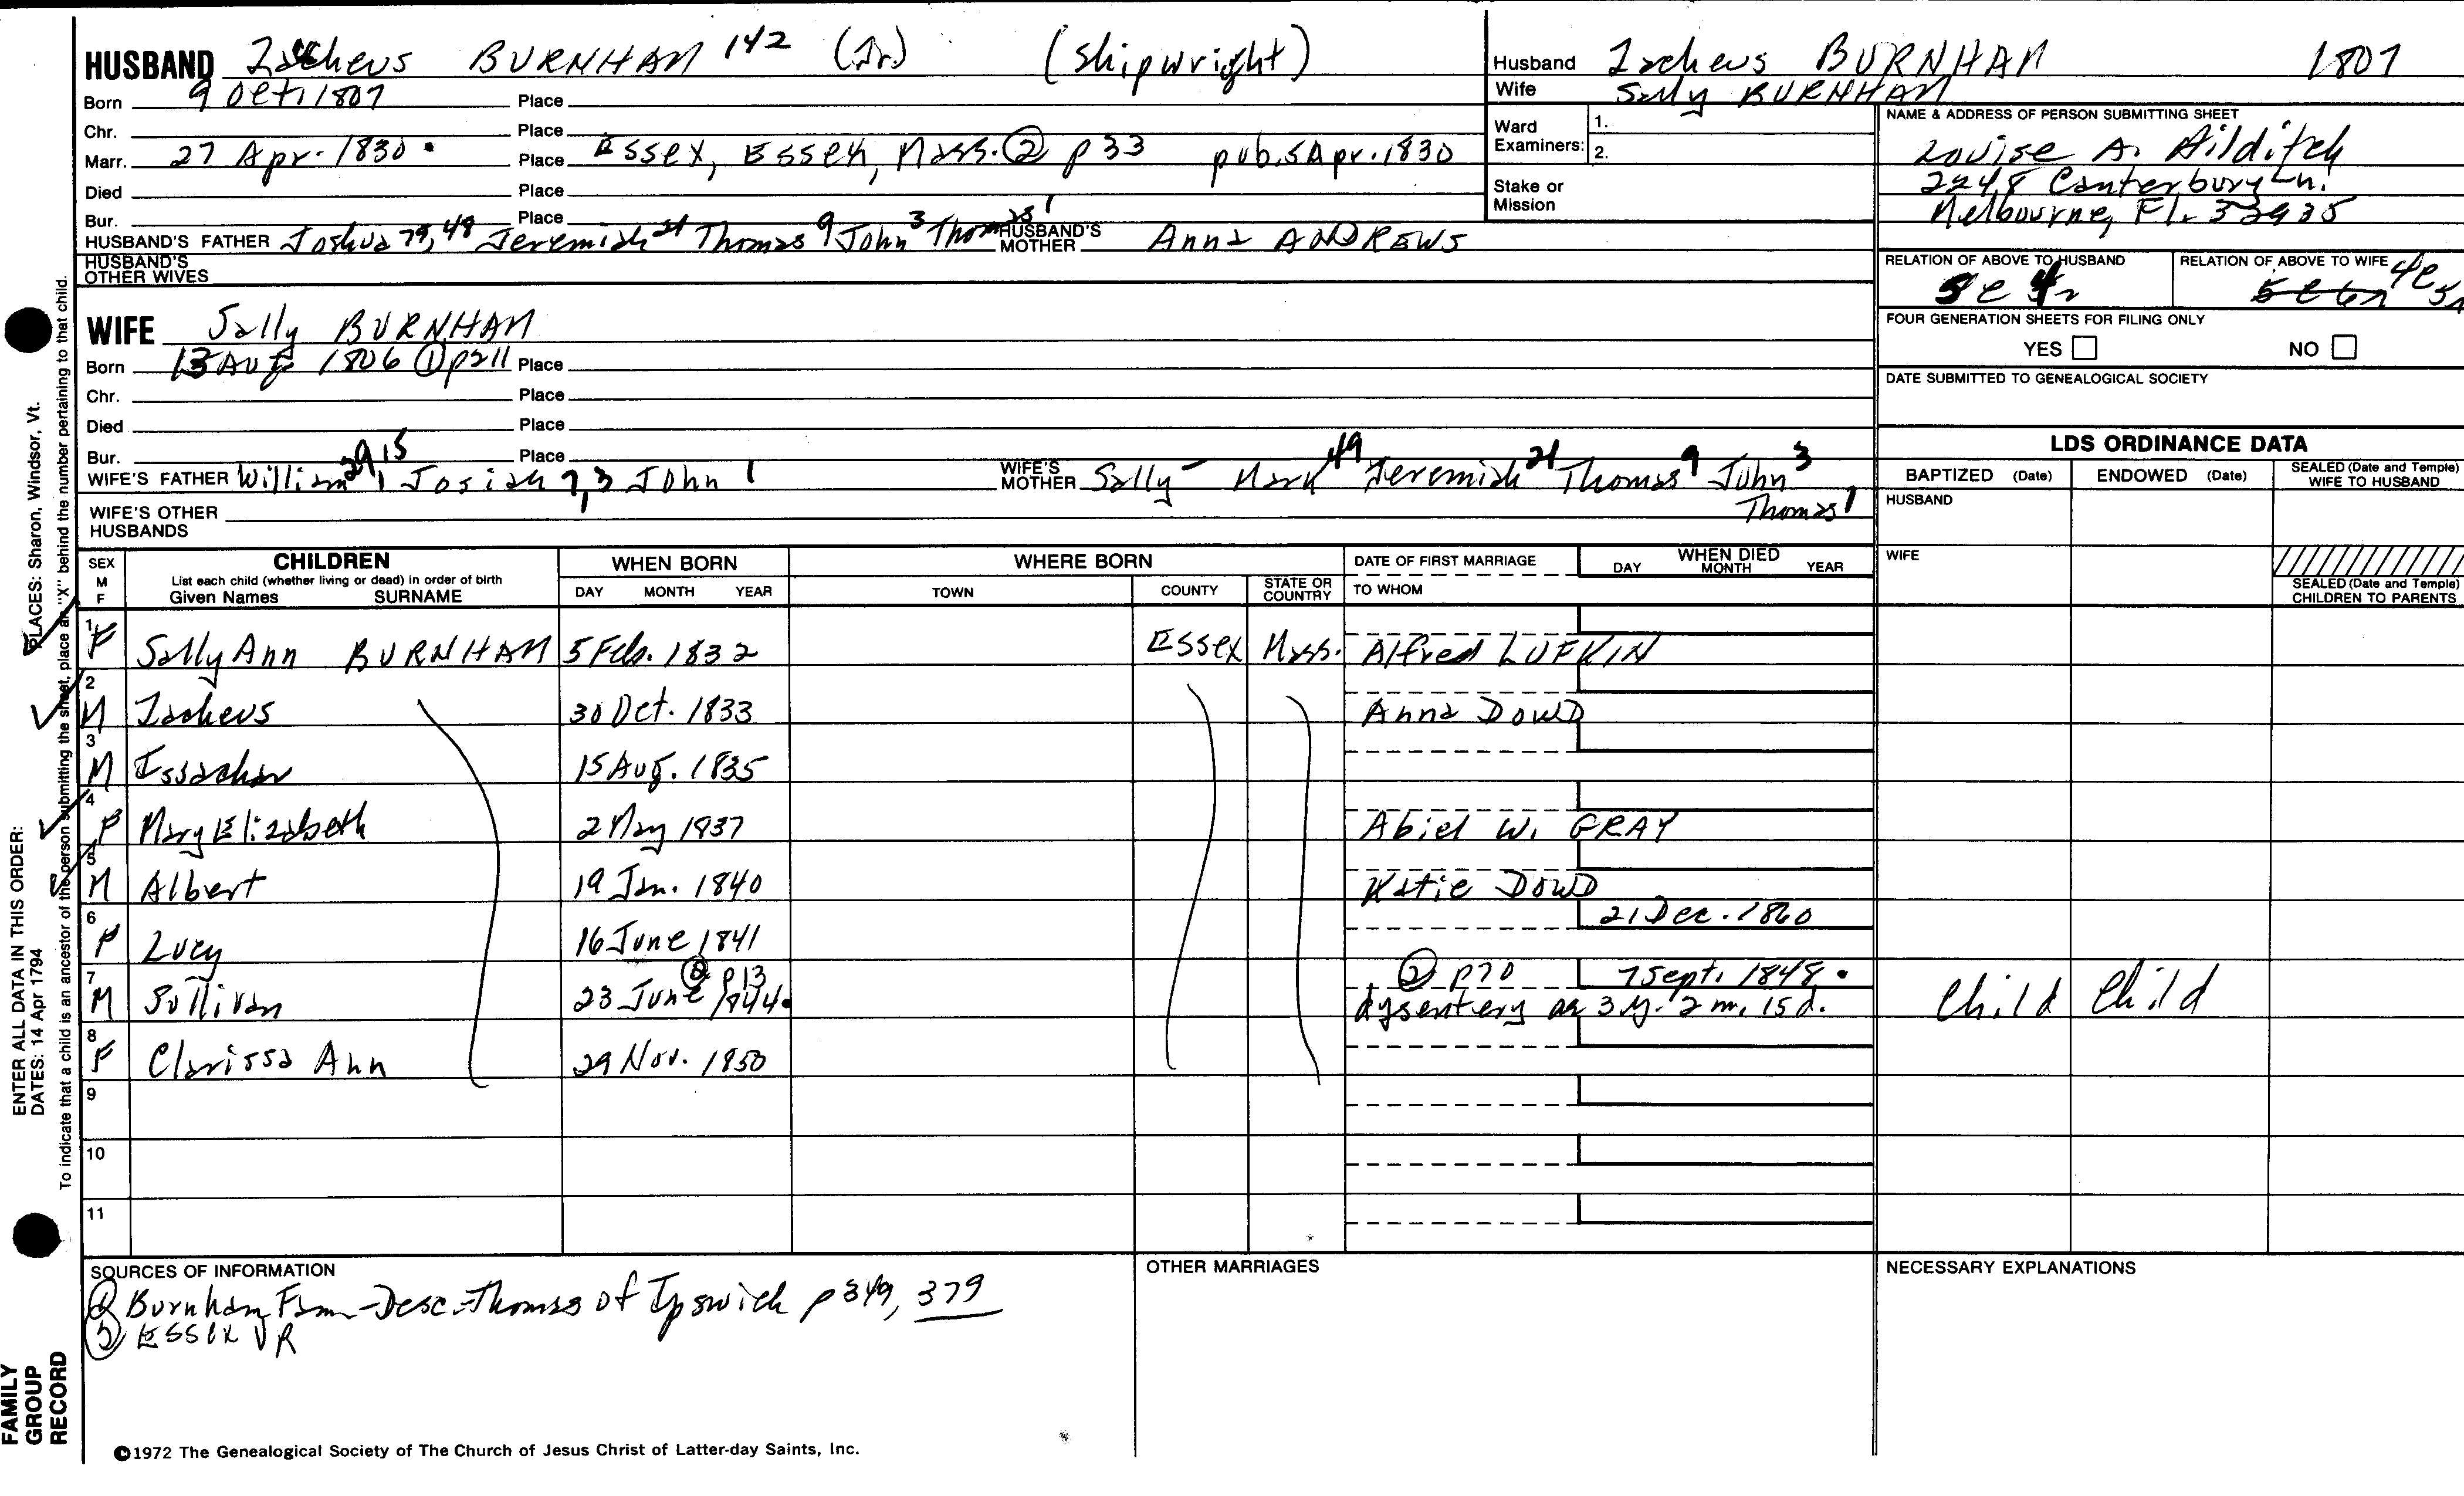 HUSBAND Zacheus BURNHAM 142 (Jr) (Shipwright)
Born 9 Oct. 1807 Place
Chr. Place
Marr. 27 Apr. 1830 Place Essex, Essex, Mass. ② p33 pub. 5 Apr. 1830
Died Place
Bur. Place
HUSBAND'S FATHER Joshua 79, 48 Jeremiah 21 Thomas 9 John 3 Thomas 1 HUSBAND'S MOTHER Anna ANDREWS
HUSBAND'S OTHER WIVES
Husband Zacheus BURNHAM 1807
Wife Sally BURNHAM
Ward Examiners: 1.
2.
Stake or Mission
NAME & ADDRESS OF PERSON SUBMITTING SHEET
Louise A. Hilditch
2248 Canterbury Ln.
Melbourne, Fl. 32935
RELATION OF ABOVE TO HUSBAND
RELATION OF ABOVE TO WIFE
FOUR GENERATION SHEETS FOR FILING ONLY
YES NO
DATE SUBMITTED TO GENEALOGICAL SOCIETY
WIFE Sally BURNHAM
Born 13 Aug 1806 ① p211 Place
Chr. Place
Died Place
Bur. Place
WIFE'S FATHER William 29, 15 Josiah 7, 3 John 1 WIFE'S MOTHER Sally - Mark 49 Jeremiah 21 Thomas 9 John 3
Thomas 1
WIFE'S OTHER HUSBANDS
LDS ORDINANCE DATA
BAPTIZED (Date) ENDOWED (Date) SEALED (Date and Temple) WIFE TO HUSBAND
HUSBAND
WIFE
SEALED (Date and Temple) CHILDREN TO PARENTS
SEX M F CHILDREN List each child (whether living or dead) in order of birth Given Names SURNAME
WHEN BORN DAY MONTH YEAR
WHERE BORN TOWN COUNTY STATE OR COUNTRY
DATE OF FIRST MARRIAGE TO WHOM
WHEN DIED DAY MONTH YEAR
1 F Sally Ann BURNHAM 5 Feb. 1832 Essex Mass. Alfred LUFKIN
2 M Zacheus 30 Oct. 1833 Anna DOWD
3 M Issachar 15 Aug. 1835
4 F Mary Elizabeth 2 May 1837 Abiel W. GRAY
5 M Albert 19 Jan. 1840 Katie DOWD
6 F Lucy 16 June 1841 21 Dec. 1860
7 M Sullivan 23 June 1844 ② p13 ② p70 7 Sept. 1848
dysentery ae 3 y. 2 m. 15 d. Child Child
8 F Clarissa Ann 29 Nov. 1850
9
10
11
SOURCES OF INFORMATION
① Burnham Fam - Desc. Thomas of Ipswich p 349, 379
② Essex VR
OTHER MARRIAGES
NECESSARY EXPLANATIONS
©1972 The Genealogical Society of The Church of Jesus Christ of Latter-day Saints, Inc.
FAMILY GROUP RECORD
ENTER ALL DATA IN THIS ORDER:
DATES: 14 Apr 1794
PLACES: Sharon, Windsor, Vt.
To indicate that a child is an ancestor of the person submitting the sheet, place an "X" behind the number pertaining to that child.